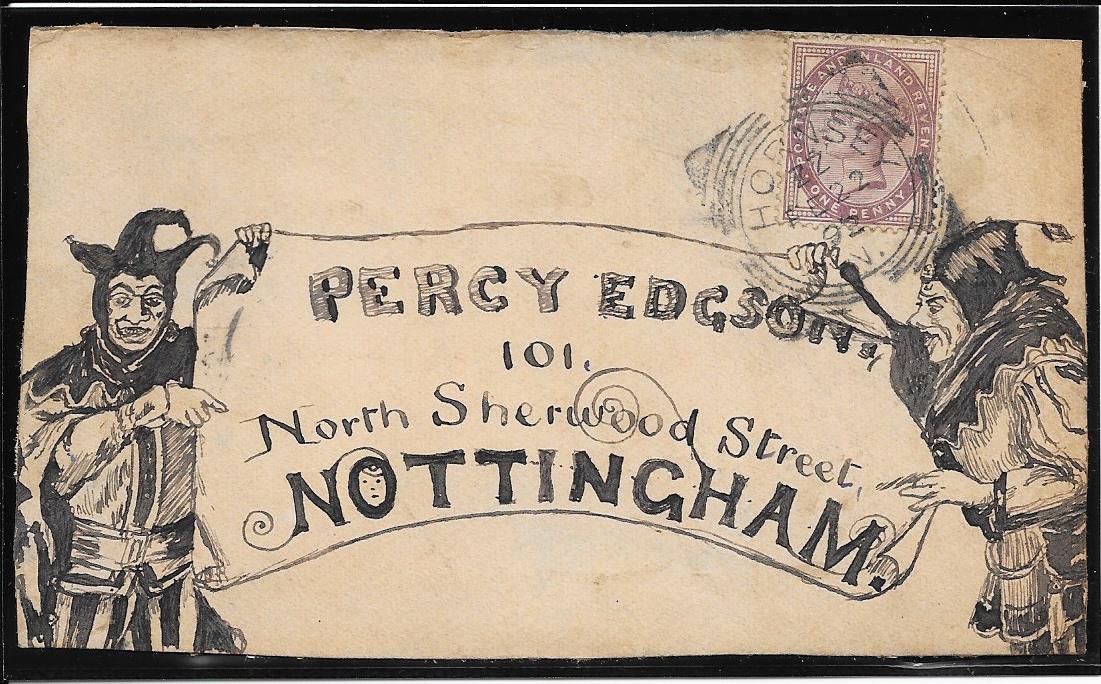 POSTAGE AND INLAND REVENUE
ONE PENNY
HORNSEY
N.
PERCY EDGSON,
101,
North Sherwood Street,
NOTTINGHAM.